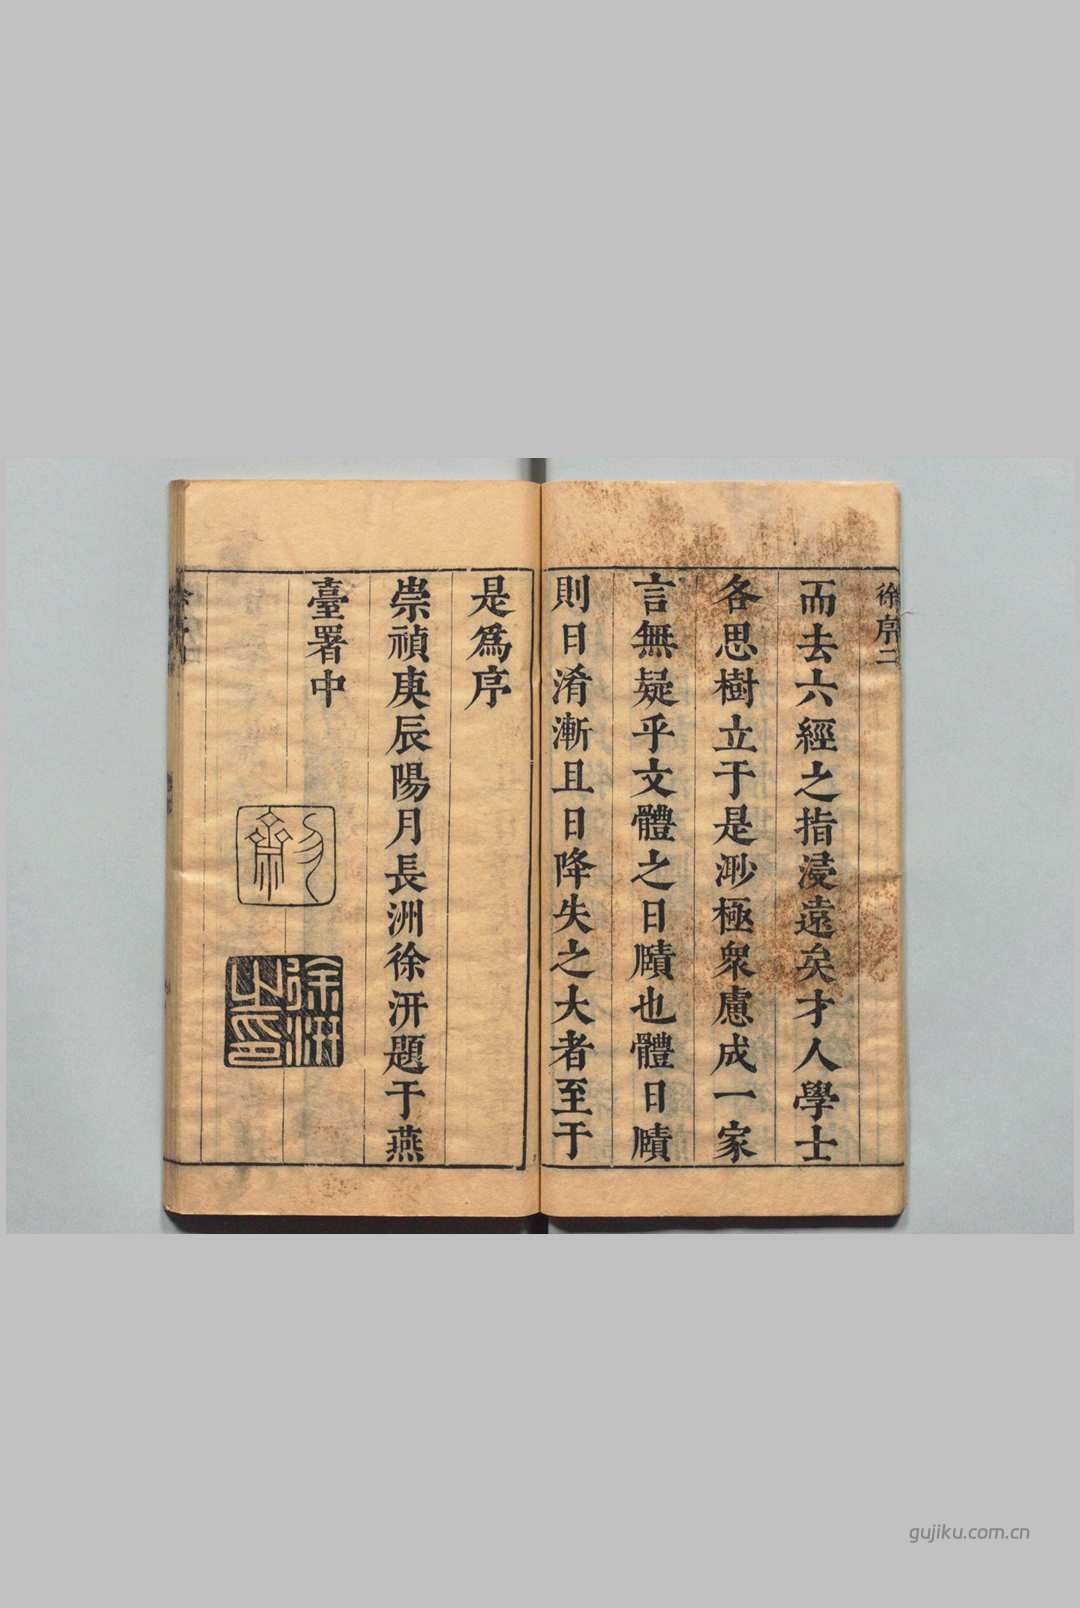 徐序二
而去六經之指浸遠矣才人學士
各思樹立于是渺極衆慮成一家
言無疑乎文體之日賾也體日賾
則日淆漸且日降失之大者至于
是爲序
崇禎庚辰陽月長洲徐汧題于燕
臺署中
徐汧之印
gujiku.com.cn